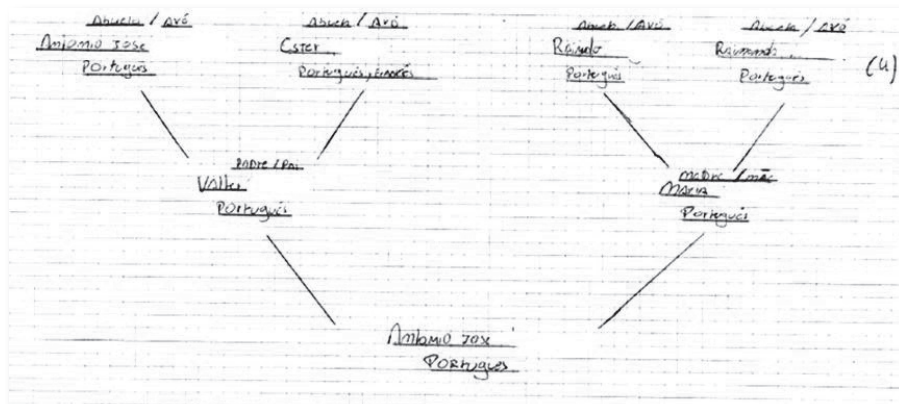 Abuelo / Avô
Antonio Jose
Português
Abuela / Avó
Ester
Português, Francés
Abuelo / Avô
Português
Abuela / Avó
Português
(4)
Padre / Pai
Valter
Português
Madre / mãe
Maria
Português
Antonio Jose
Português